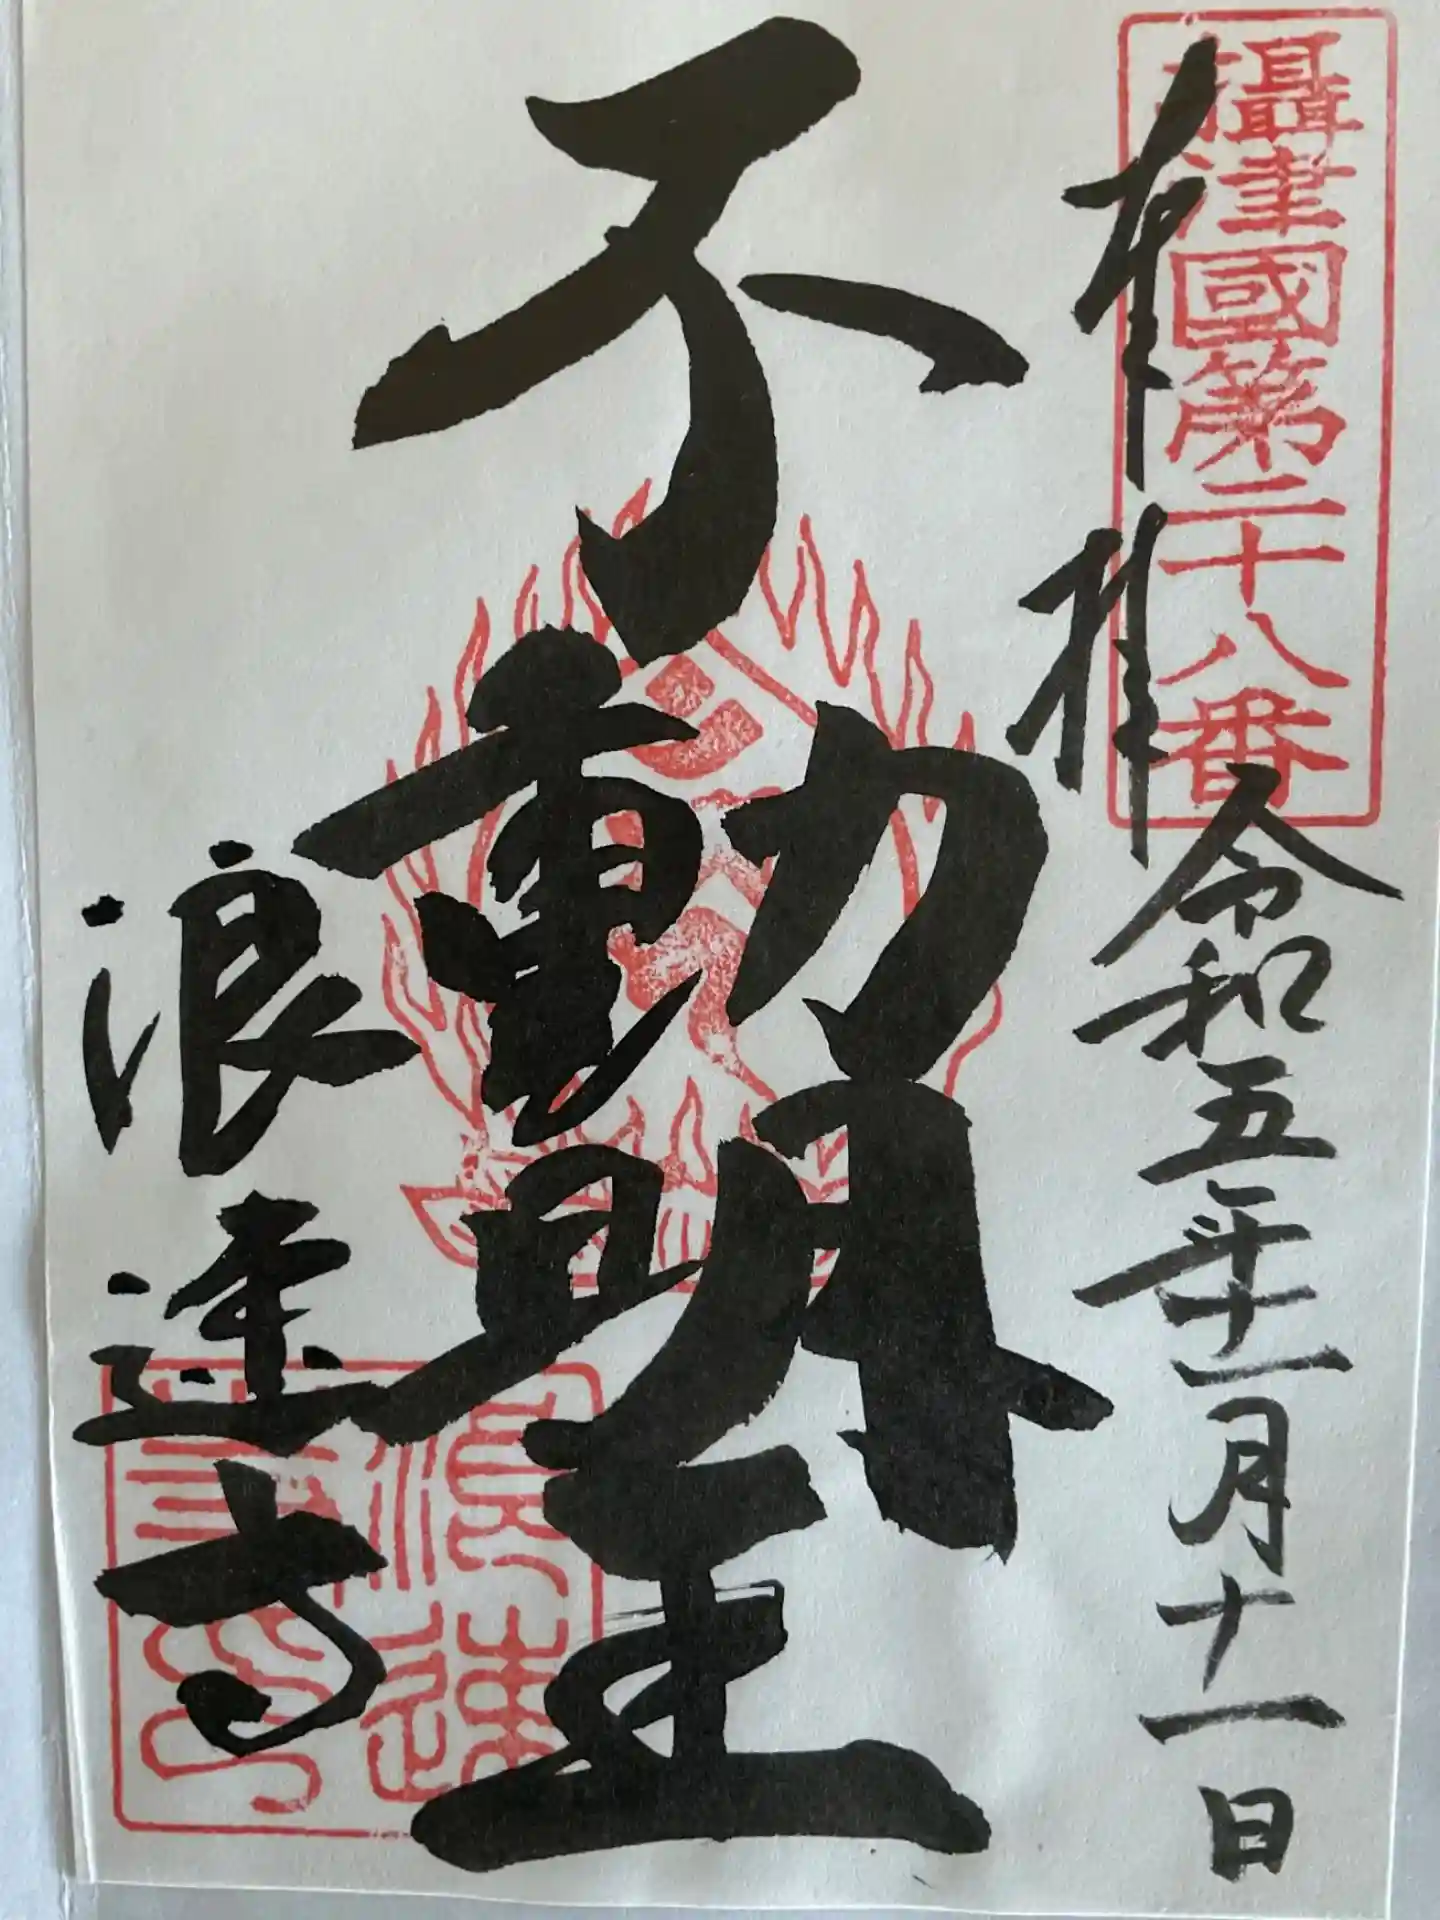 攝津國第二十八番
奉拝
令和五年十一月十一日
不動明王
浪速寺
浪速寺印